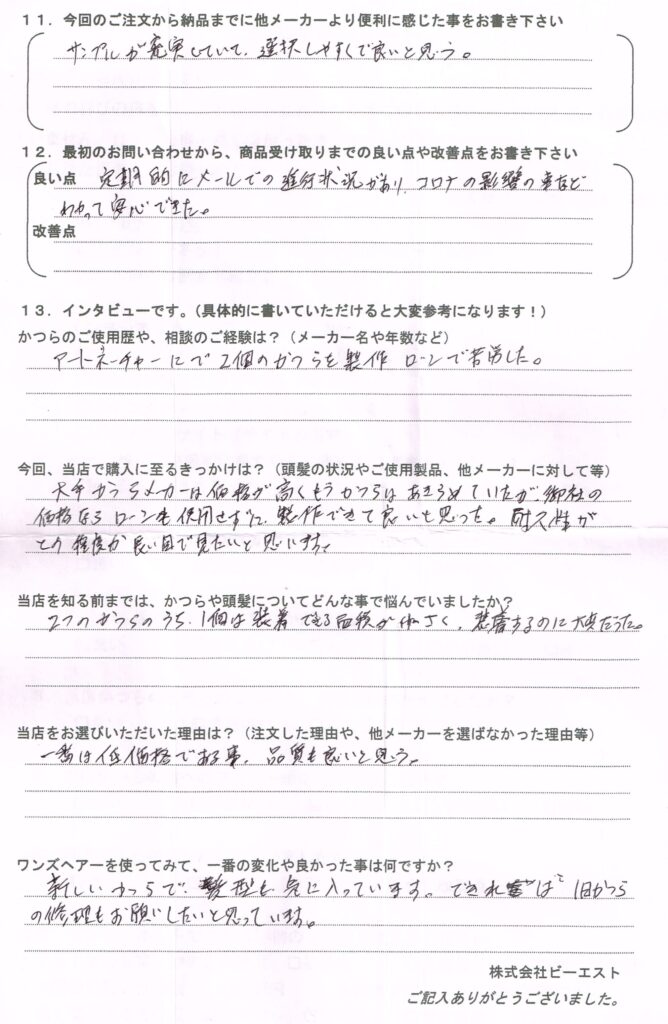 １１．今回のご注文から納品までに他メーカーより便利に感じた事をお書き下さい
サンプルが充実していて、選択しやすくて良いと思う。
１２．最初のお問い合わせから、商品受け取りまでの良い点や改善点をお書き下さい
良い点 定期的にメールでの進行状況があり、コロナの影響の事など
わかって安心できた。
改善点
１３．インタビューです。（具体的に書いていただけると大変参考になります！）
かつらのご使用歴や、相談のご経験は？（メーカー名や年数など）
アートネーチャーにて２個のかつらを製作 ローンで苦労した。
今回、当店で購入に至るきっかけは？（頭髪の状況やご使用製品、他メーカーに対して等）
大手かつらメーカーは価格が高くもうかつらはあきらめていたが、御社の
価格なら ローンも使用せずに、製作できて良いと思った。耐久性が
どの程度か長い目で見たいと思います。
当店を知る前までは、かつらや頭髪についてどんな事で悩んでいましたか？
２つのかつらのうち、１個は装着できる面積が小さく、装着するのに大変だった。
当店をお選びいただいた理由は？（注文した理由や、他メーカーを選ばなかった理由等）
一番は低価格である事、品質も良いと思う。
ワンズヘアーを使ってみて、一番の変化や良かった事は何ですか？
新しいかつらで、髪型も気に入っています。できれば、旧かつら
の修理もお願いしたいと思っています。
株式会社ビーエスト
ご記入ありがとうございました。